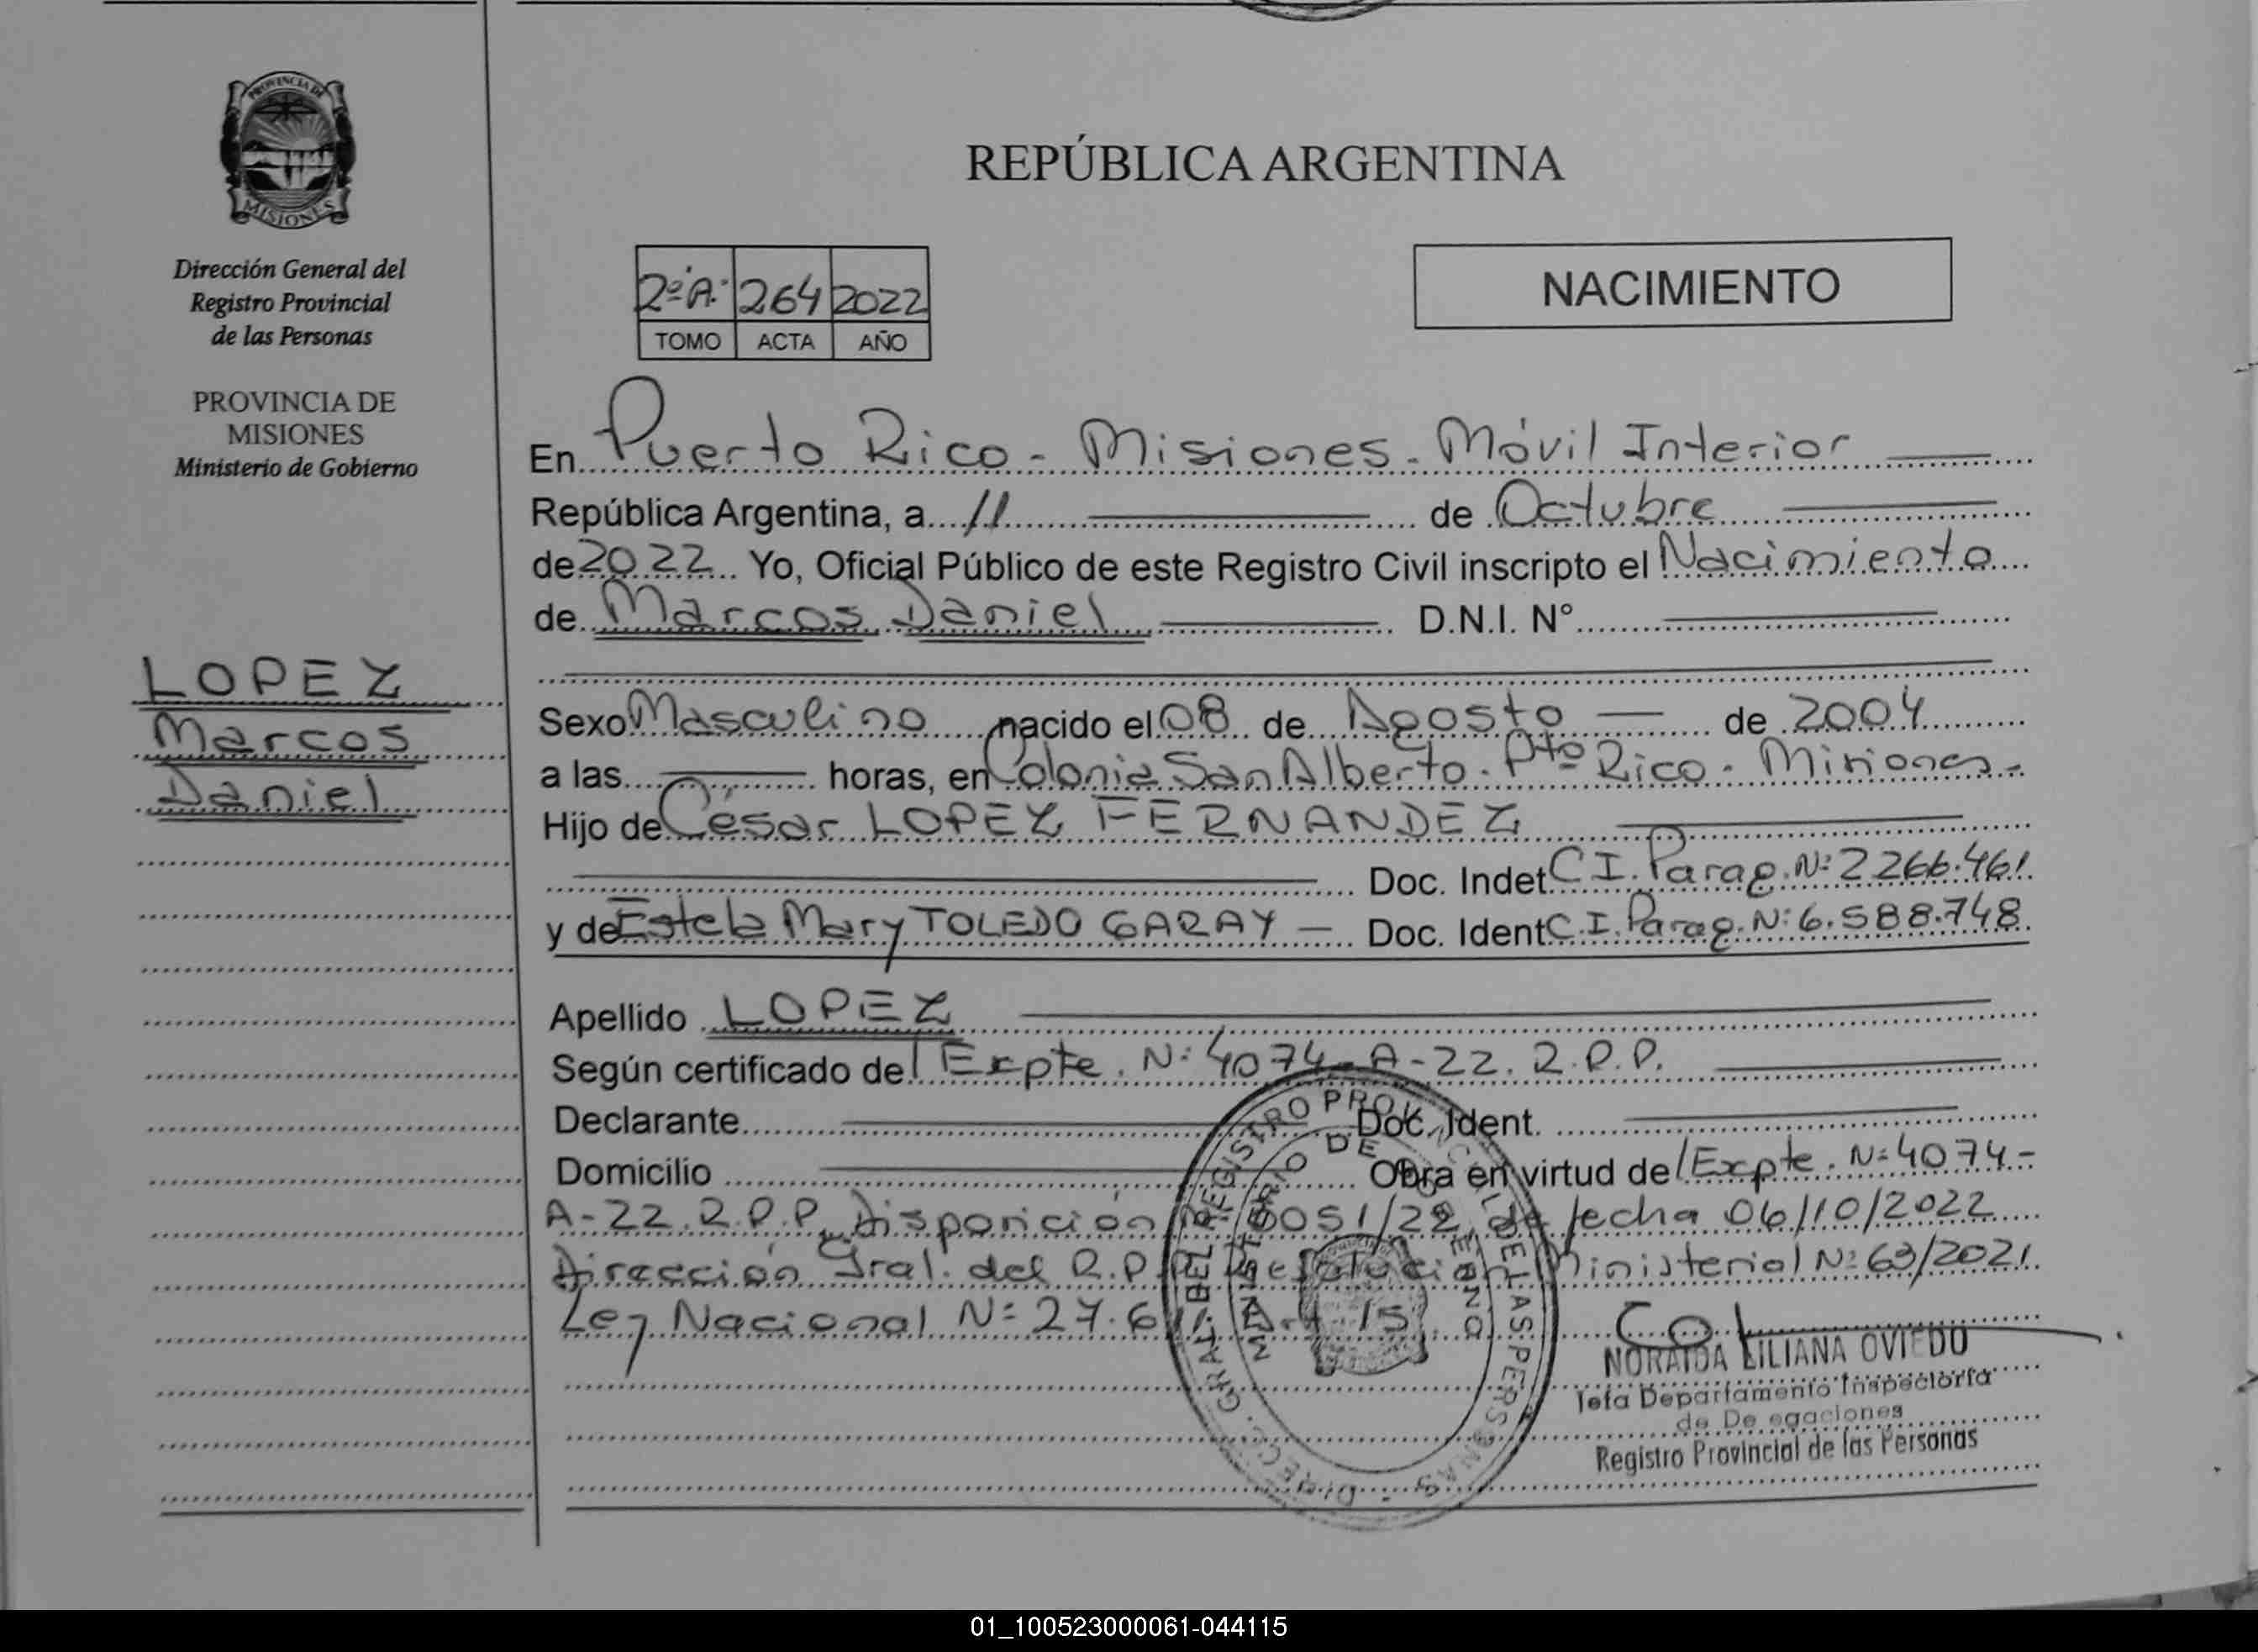 PROVINCIA DE
MISIONES
Dirección General del
Registro Provincial
de las Personas
PROVINCIA DE
MISIONES
Ministerio de Gobierno
LOPEZ
Marcos
Daniel
REPÚBLICA ARGENTINA
2º A. 264 2022
TOMO ACTA AÑO
NACIMIENTO
En Puerto Rico - Misiones - Móvil Interior
República Argentina, a 11 de Octubre
de 2022 Yo, Oficial Público de este Registro Civil inscripto el Nacimiento
de Marcos Daniel D.N.I. N°
Sexo Masculino nacido el 08 de Agosto de 2004
a las horas, en Colonia San Alberto. Pto Rico - Misiones-
Hijo de César LOPEZ FERNANDEZ
Doc. Indet C I. Parag. Nº 2266.461
y de Estela Mary TOLEDO GARAY Doc. Ident C.I. Parag. Nº 6.588.748
Apellido LOPEZ
Según certificado del Expte. Nº 4074-A-22. R.P.P.
Declarante Doc. Ident.
Domicilio Obra en virtud del Expte. Nº 4074-
A-22. R.P.P. Disposición 6051/22 de fecha 06/10/2022
Dirección Gral. del R.P.P. Resolución Ministerial Nº 63/2021
Ley Nacional Nº 27.6 Art 15.
DIRECC. GRAL. DEL REGISTRO PROVINCIAL DE LAS PERSONAS
MINISTERIO DE GOBIERNO
NORAIDA LILIANA OVIEDO
Jefa Departamento Inspectoría
de De egaciones
Registro Provincial de las Personas
01_100523000061-044115